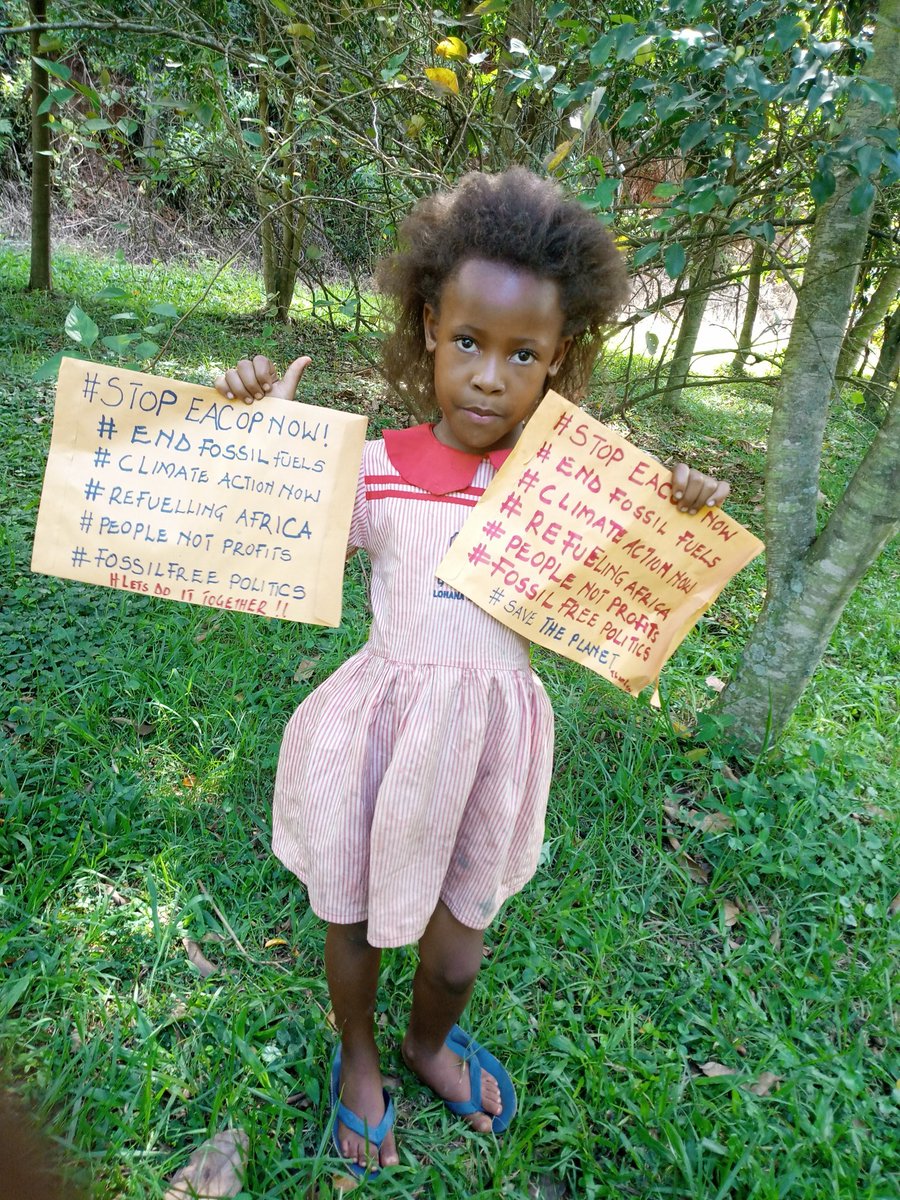 #STOP EACOP NOW!
# END FOSSIL FUELS
# CLIMATE ACTION NOW
#REFUELLING AFRICA
#PEOPLE NOT PROFITS
#FOSSILFREE POLITICS
#LETS DO IT TOGETHER !!
#STOP EACOP NOW
# END FOSSIL FUELS
#CLIMATE ACTION NOW
# REFUELING AFRICA
# PEOPLE NOT PROFITS
#FOSSIL FREE POLITICS
# SAVE THE PLANET
LOHANA